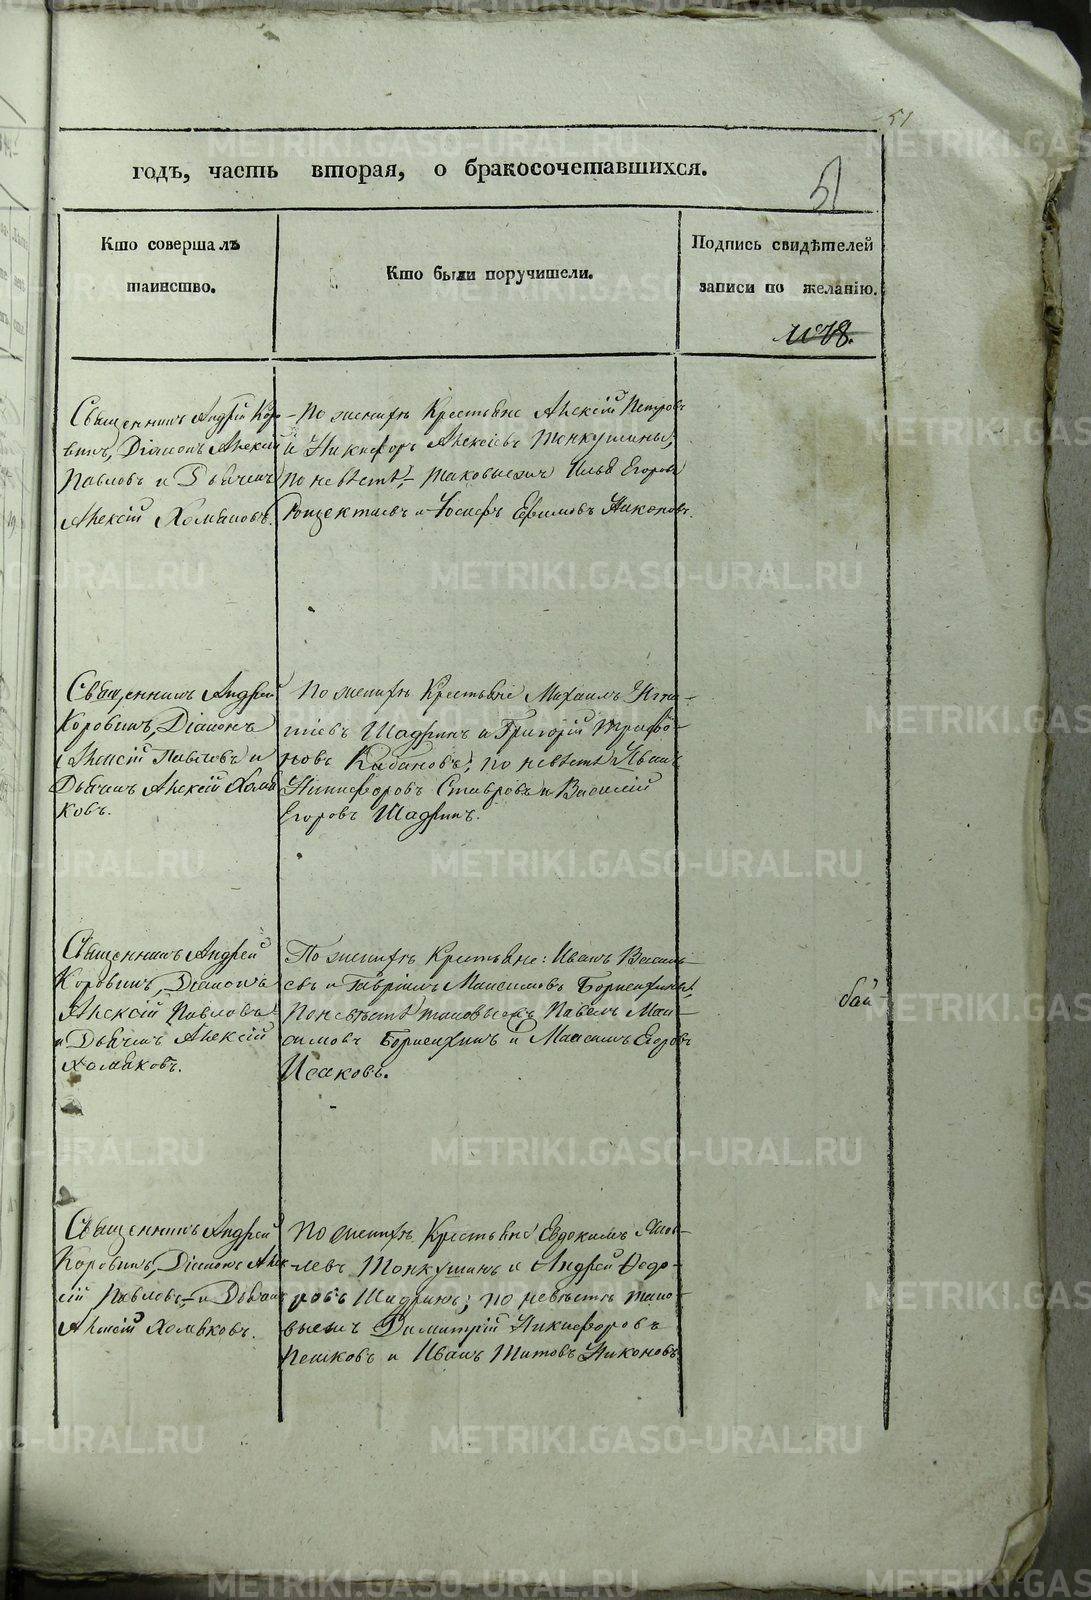 51
годъ, часть вторая, о бракосочетавшихся.
51
Кто совершалъ
таинство.
Кто были поручители.
Подпись свидѣтелей
записи по желанію.
№ 78.
Священникъ Андрей Коро-
винъ, Діаконъ Алексій
Павловъ и Дьячекъ
Алексій Хомяковъ.
По женихѣ Крестьяне Алексій Петровъ
и Никифоръ Алексіевъ
по невѣстѣ, таковыежъ Илья Егоровъ
и Іосифъ Ефимовъ Никоновъ.
Священникъ Андрей
Коровинъ, Діаконъ
Алексій Павловъ и
Дьячекъ Алексій Хомя
ковъ.
По женихѣ Крестьяне Михаилъ Игна-
тіевъ Шадринъ и Григорій Трифо-
новъ Кабановъ, по невѣстѣ Иванъ
Никифоровъ и Василій
Егоровъ Шадринъ.
Священникъ Андрей
Коровинъ, Діаконъ
Алексій Павловъ
и Дьячекъ Алексій
Хомяковъ.
По женихѣ Крестьяне: Иванъ Василь-
евъ и Гавріилъ Максимовъ
По невѣстѣ таковыежъ Павелъ Мак-
симовъ и Максимъ Егоровъ
Исаковъ.
бай
Священникъ Андрей
Коровинъ, Діаконъ Алек-
сій Павловъ и Дьячекъ
Алексій Хомяковъ.
По женихѣ Крестьяне Евдокимъ Яков-
левъ и Андрей Федо-
ровъ Шадринъ; по невѣстѣ тако-
выежъ Димитрій Никифоровъ
Пешковъ и Иванъ Титовъ Никоновъ.
METRIKI.GASO-URAL.RU